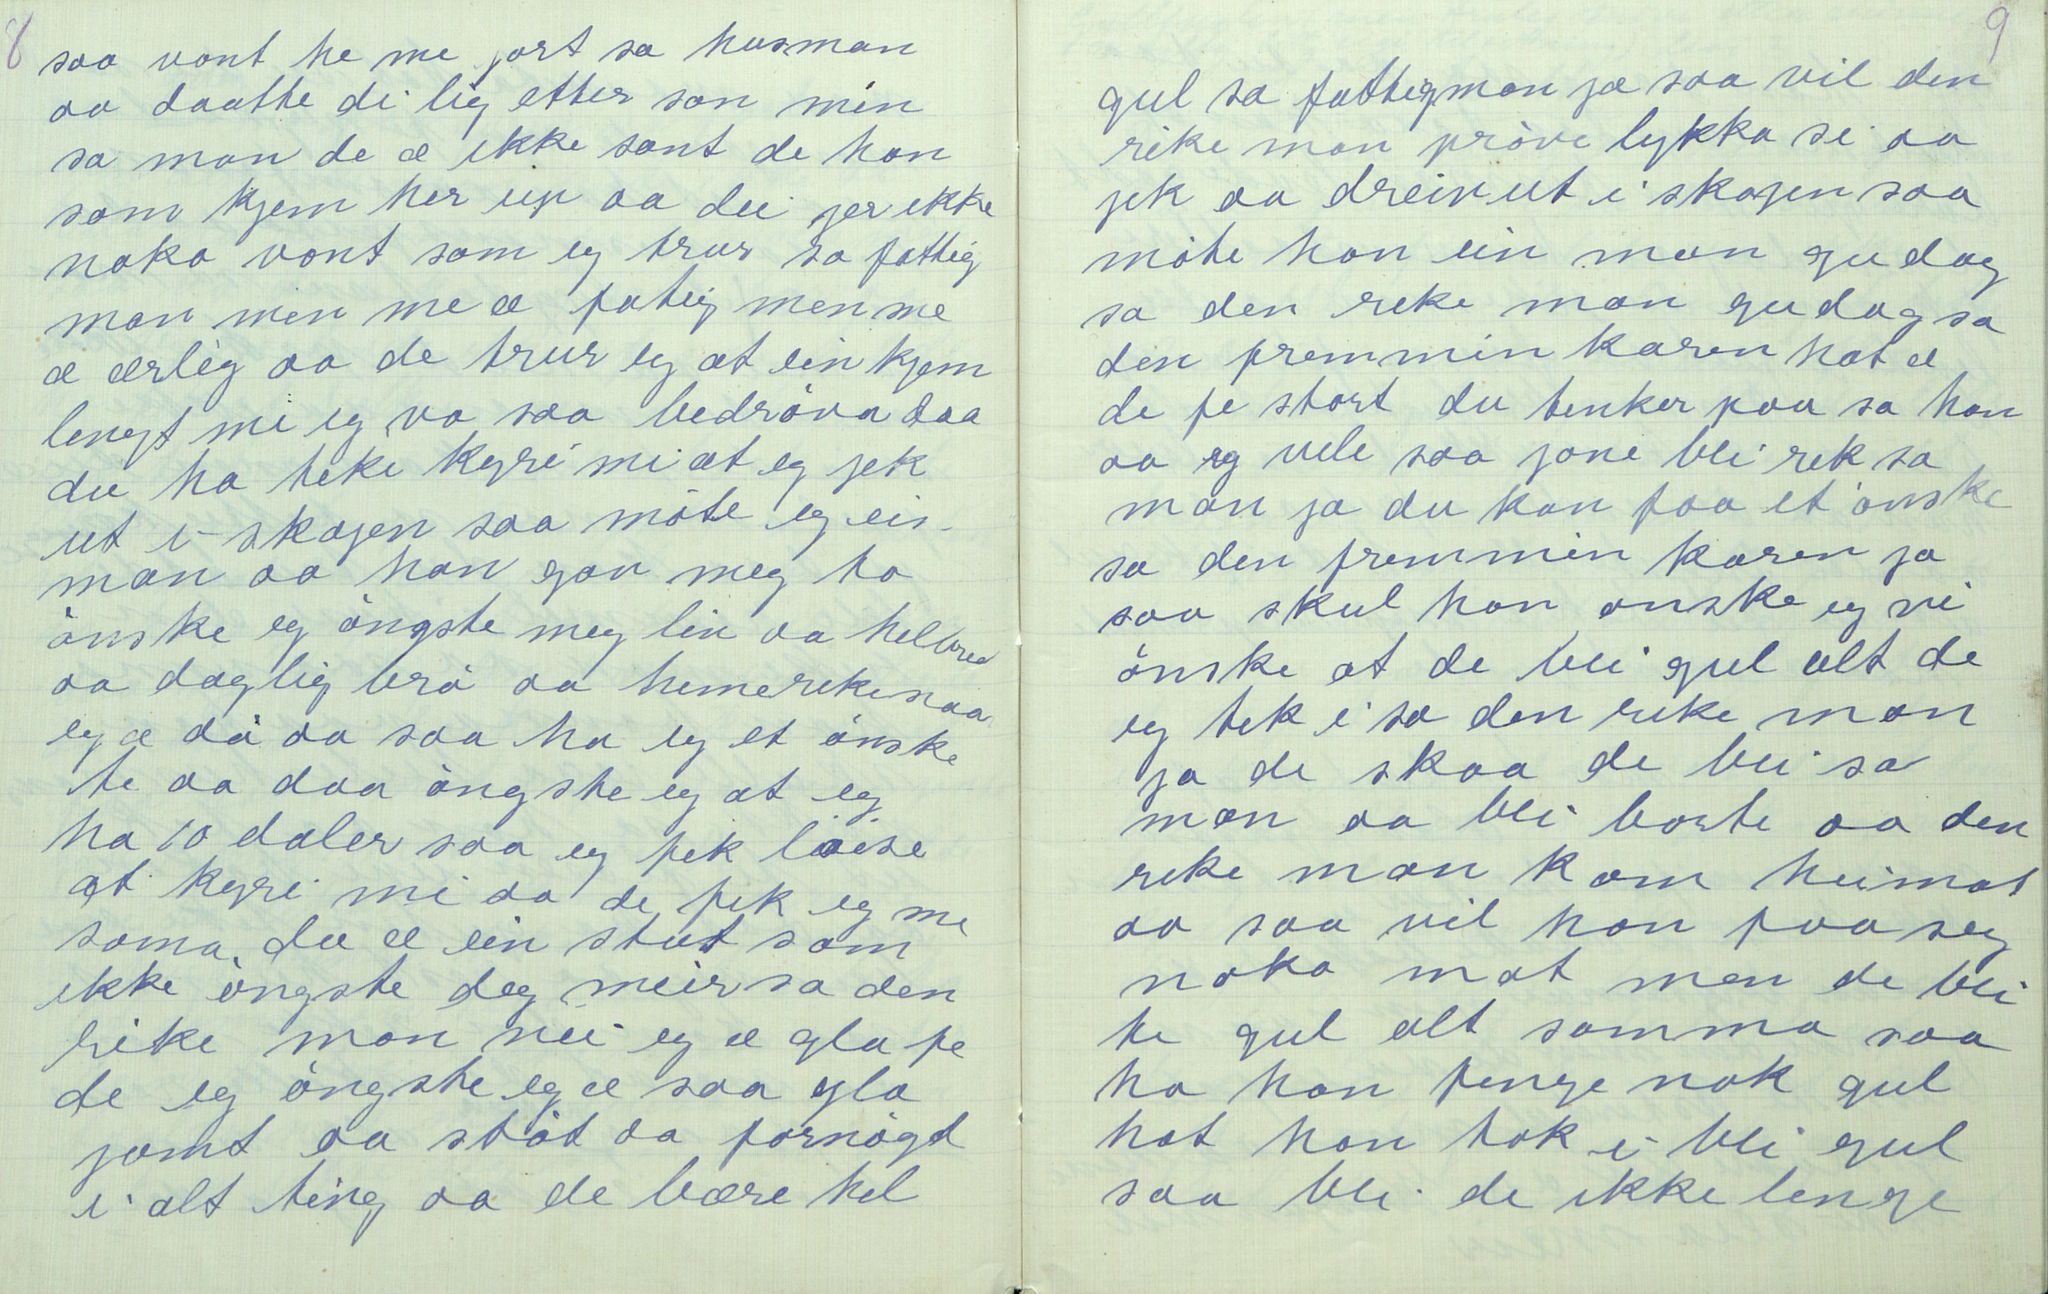 8
saa vont he me jort sa husman
aa daatte di lig etter son min
sa man de æ ikke sant de han
som kjem her up aa dei jer ikke
noko vont som eg trur sa fattig
man men me æ fatig men me
æ ærlig aa de trur eg at ein kjem
lengst mi eg va saa bedröva daa
du ha teke kyri mi at eg jek
ut i skogen saa möte eg ein
man aa han gav meg to
önske eg öngste meg liv aa helbred
aa daglig brö aa himerike naa
eg æ dö aa saa ha eg et önske
te aa daa öngste eg at eg
ha 10 daler saa eg fek löise
at kyri mi aa de fek eg me
soma. du æ ein stut som
ikke öngste deg meir sa den
rike man nei eg æ gla fe
de eg öngste eg æ saa gla
jamt aa stöt aa fornögd
i alt ting aa de bære til
9
gul sa fattigman ja saa vil den
rike man pröve lykka si aa
jek aa dreiv ut i skogen saa
möte han ein man gudag
sa den rike man gudag sa
den fremmin karen hot æ
de fe stort du tenker paa sa han
aa eg vile saa jone bli rik sa
man ja du kan faa et önske
sa den fremmin karen ja
saa skul han onske eg vi
önske at de bli gul alt de
eg tek i sa den rike man
ja de skaa de bli sa
man aa bli borte aa den
rike man kom heimat
aa saa vil han faa seg
noko mat men de bli
te gul alt somma saa
ha han penge nok gul
hot han tok i bli gul
saa bli de ikke lenge